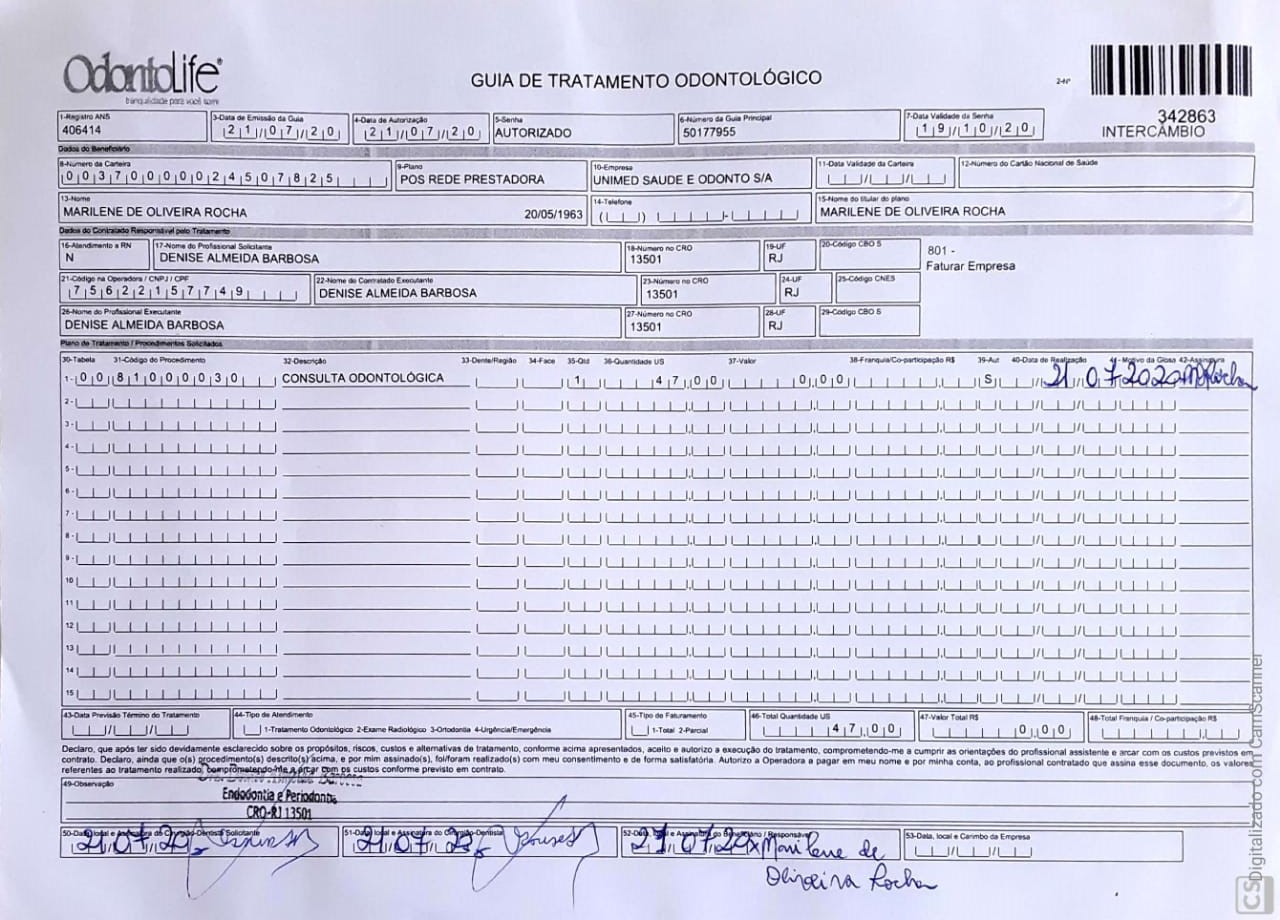 OdontoLife®
tranquilidade para você sorrir
GUIA DE TRATAMENTO ODONTOLÓGICO
2-Nº
342863
INTERCÂMBIO
1-Registro ANS
406414
3-Data de Emissão da Guia
21/07/20
4-Data de Autorização
21/07/20
5-Senha
AUTORIZADO
6-Número da Guia Principal
50177955
7-Data Validade da Senha
19/10/20
Dados do Beneficiário
8-Número da Carteira
00370000024507825
9-Plano
POS REDE PRESTADORA
10-Empresa
UNIMED SAUDE E ODONTO S/A
11-Data Validade da Carteira
12-Número do Cartão Nacional de Saúde
13-Nome
MARILENE DE OLIVEIRA ROCHA 20/05/1963
14-Telefone
15-Nome do titular do plano
MARILENE DE OLIVEIRA ROCHA
Dados do Contratado Responsável pelo Tratamento
16-Atendimento a RN
N
17-Nome do Profissional Solicitante
DENISE ALMEIDA BARBOSA
18-Número no CRO
13501
19-UF
RJ
20-Código CBO S
801 -
Faturar Empresa
21-Código na Operadora / CNPJ / CPF
75622157749
22-Nome do Contratado Executante
DENISE ALMEIDA BARBOSA
23-Número no CRO
13501
24-UF
RJ
25-Código CNES
26-Nome do Profissional Executante
DENISE ALMEIDA BARBOSA
27-Número no CRO
13501
28-UF
RJ
29-Código CBO S
Plano de Tratamento / Procedimentos Solicitados
30-Tabela 31-Código do Procedimento 32-Descrição 33-Dente/Região 34-Face 35-Qtd 36-Quantidade US 37-Valor 38-Franquia/Co-participação R$ 39-Aut 40-Data de Realização 41-Motivo da Glosa 42-Assinatura
1- 00 81000030 CONSULTA ODONTOLÓGICA 1 47,00 0,00 S 21 07 2020 M Rocha
2-
3-
4-
5-
6-
7-
8-
9-
10
11
12
13
14
15
43-Data Previsão Término do Tratamento
44-Tipo de Atendimento
1-Tratamento Odontológico 2-Exame Radiológico 3-Ortodontia 4-Urgência/Emergência
45-Tipo de Faturamento
1-Total 2-Parcial
46-Total Quantidade US
47,00
47-Valor Total R$
0,00
48-Total Franquia / Co-participação R$
Declaro, que após ter sido devidamente esclarecido sobre os propósitos, riscos, custos e alternativas de tratamento, conforme acima apresentados, aceito e autorizo a execução do tratamento, comprometendo-me a cumprir as orientações do profissional assistente e arcar com os custos previstos em
contrato. Declaro, ainda que o(s) procedimento(s) descrito(s) acima, e por mim assinado(s), foi/foram realizado(s) com meu consentimento e de forma satisfatória. Autorizo a Operadora a pagar em meu nome e por minha conta, ao profissional contratado que assina esse documento, os valores
referentes ao tratamento realizado, comprometendo-me a arcar com os custos conforme previsto em contrato.
49-Observação
Endodontia e Periodontia
CRO-RJ 13501
50-Data, local e Assinatura do Cirurgião-Dentista Solicitante
21 07 20
51-Data, local e Assinatura do Cirurgião-Dentista
21 07 20
52-Data, local e Assinatura do Beneficiário / Responsável
21 07 20 x Marilene de
Oliveira Rocha
53-Data, local e Carimbo da Empresa
CS Digitalizado com CamScanner